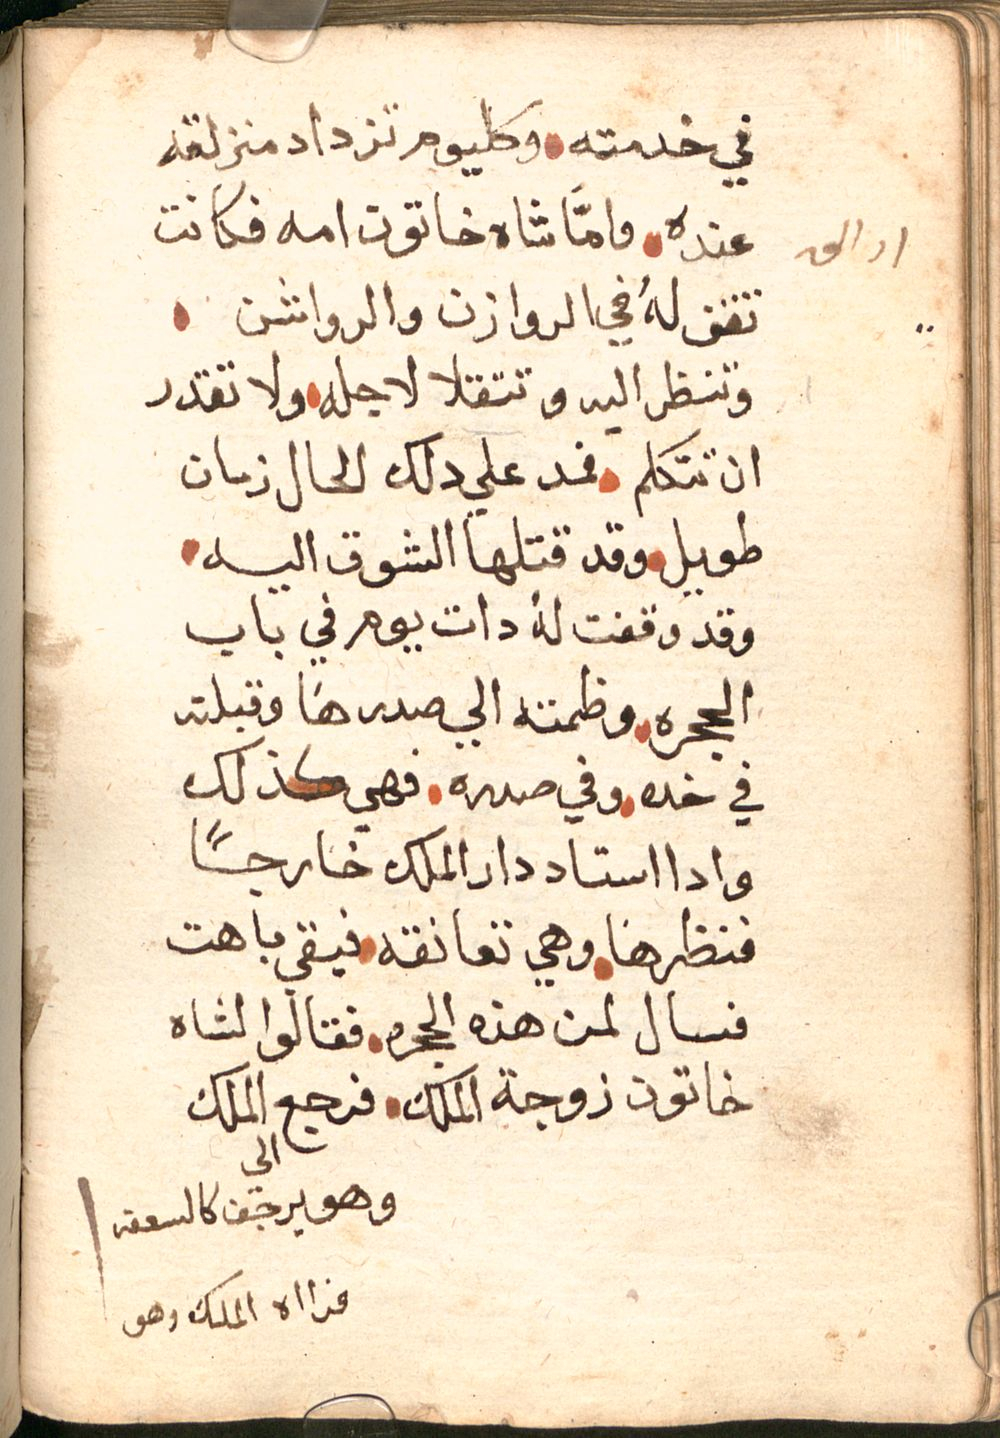 في خدمته . وكليوم تزداد منزلته
عنده . وامَّا شاه خاتون امه فكانت
تقف لهُ في الروازن والرواشن .
وتنظر اليه وتتقلا لاجله . ولا تقدر
ان تتكلم . فمد علي دلك الحال زمان
طويل . وقد قتلها الشوق اليه .
وقد وقفت لهُ دات يوم في باب
الحجره . وظمته الي صدرها وقبلته
في خده . وفي صدره . فهي كذلك
وادا استاد دار الملك خارجًا
فنظرها . وهي تعانقه . فبقي باهت
فسال لمن هذه الحجره . فقالوا لشاه
خاتون زوجة الملك . فرجع الملك
الي
وهو يرجف كالسعفه
فراه الملك وهو